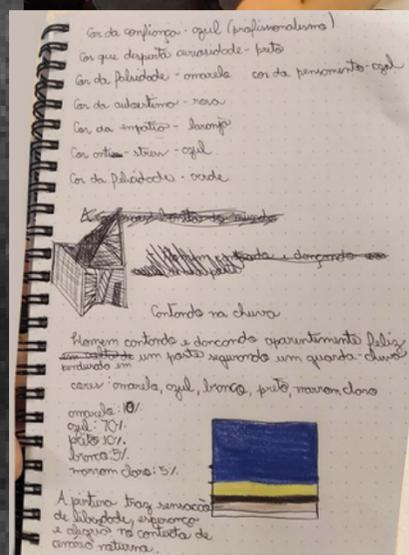 Cor da confiança - azul (profissionalismo)
Cor que desperta curiosidade - preto
Cor da falsidade - amarelo cor do pensamento - azul
Cor da autoestima - rosa
Cor da empatia - laranja
Cor anti - stress - azul
Cor da felicidade - verde
Cantando na chuva
Homem cantando e dançando aparentemente feliz
pendurado em um poste segurando um guarda-chuva
cores: amarelo, azul, branco, preto, marrom claro
amarelo: 10%
azul: 70%
preto 10%
branco: 5%
marrom claro: 5%
A pintura traz sensação
de liberdade, esperança
e alegria no contexto de
cenário noturno.